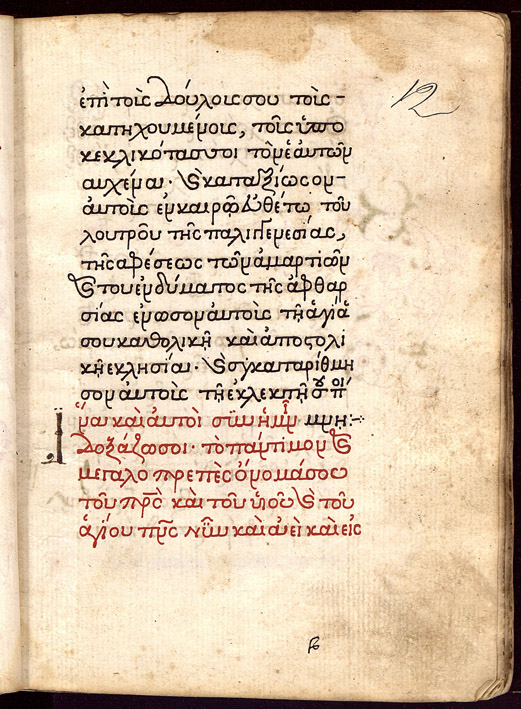 12
ἐπὶ τοὺς δούλους σου τοὺς
κατηχουμένους, τοὺς ὑπο
κεκλικότας σοι τὸν ἑαυτῶν
αυχένα· καταξίωσον
αὐτοὺς ἐν καιρῷ εὐθέτω τοῦ
λουτροῦ τῆς παλιγγενεσίας,
τῆς αφέσεως τῶν ἁμαρτιῶν
καὶ τοῦ ἐνδύματος τῆς ἀφθαρ
σίας ἕνωσον αὐτοὺς τῇ ἁγίᾳ
σου καθολικῇ καὶ ἀποστολι
κῇ εκλησίᾳ· καὶ συγκαταρίθμη
σον αὐτοὺς τῇ ἐκλεκτῇ σου ποί
ἵνα καὶ αὐτοὶ σὺν ἡμῖν
δοξάζωσοι· τὸ πάντιμον καὶ
μεγαλοπρεπὲς ὄνομά σου
τοῦ πρς καὶ τοῦ υἱοῦ καὶ τοῦ
ἁγίου πνς νῦν καὶ αεὶ καὶ εἰς